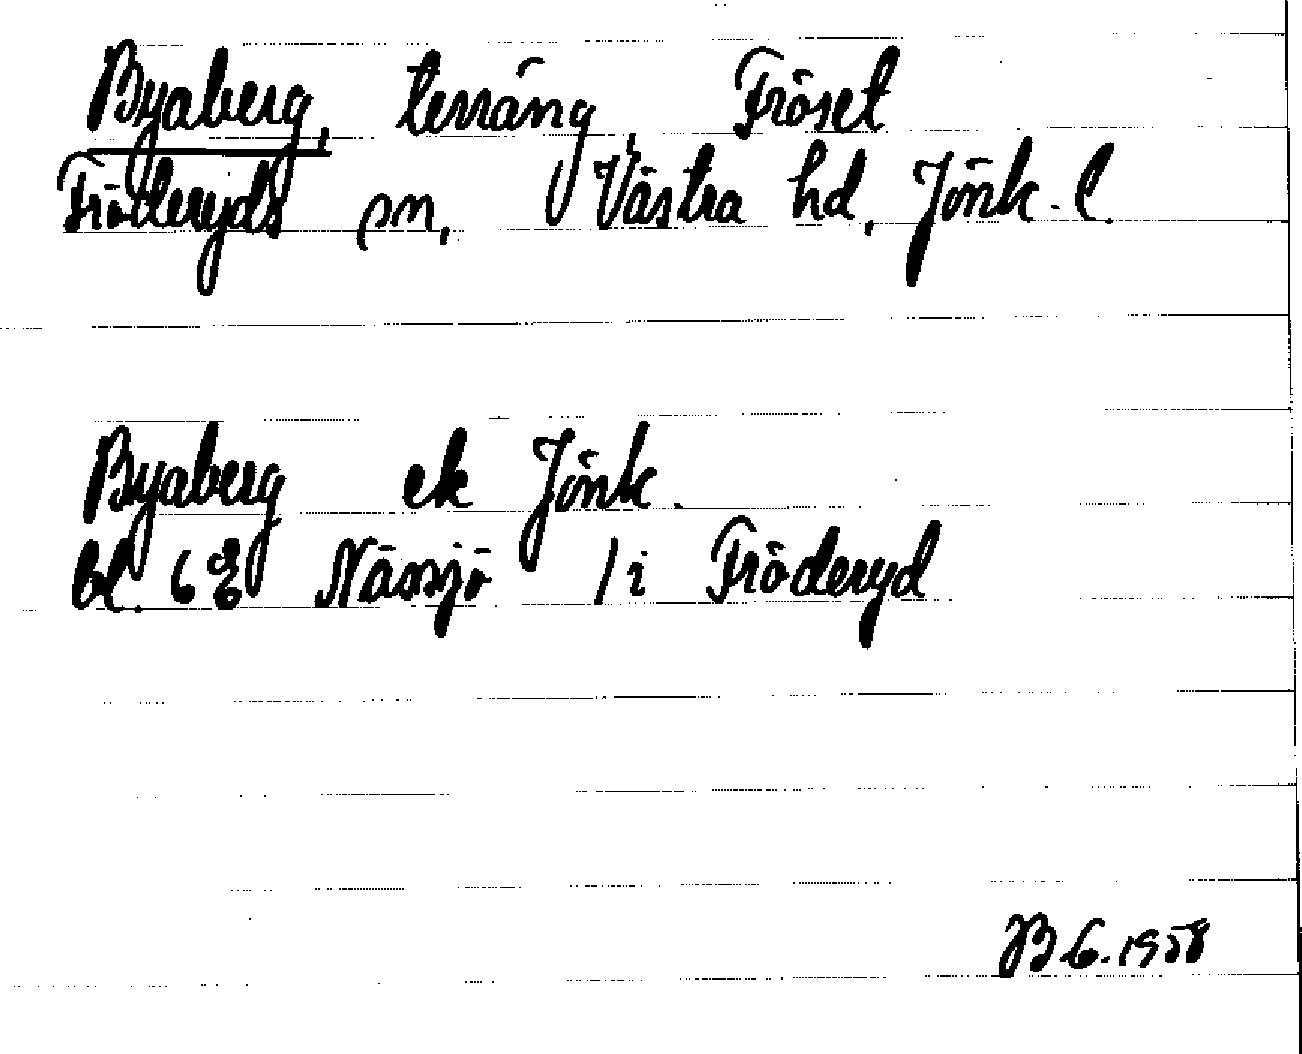 Byaberg, terräng, Fröset
Fröderyds sn, Västra hd, Jönk. l.
Byaberg ek Jönk.
bl. 6 E Nässjö / i Fröderyd
JB 6.1958